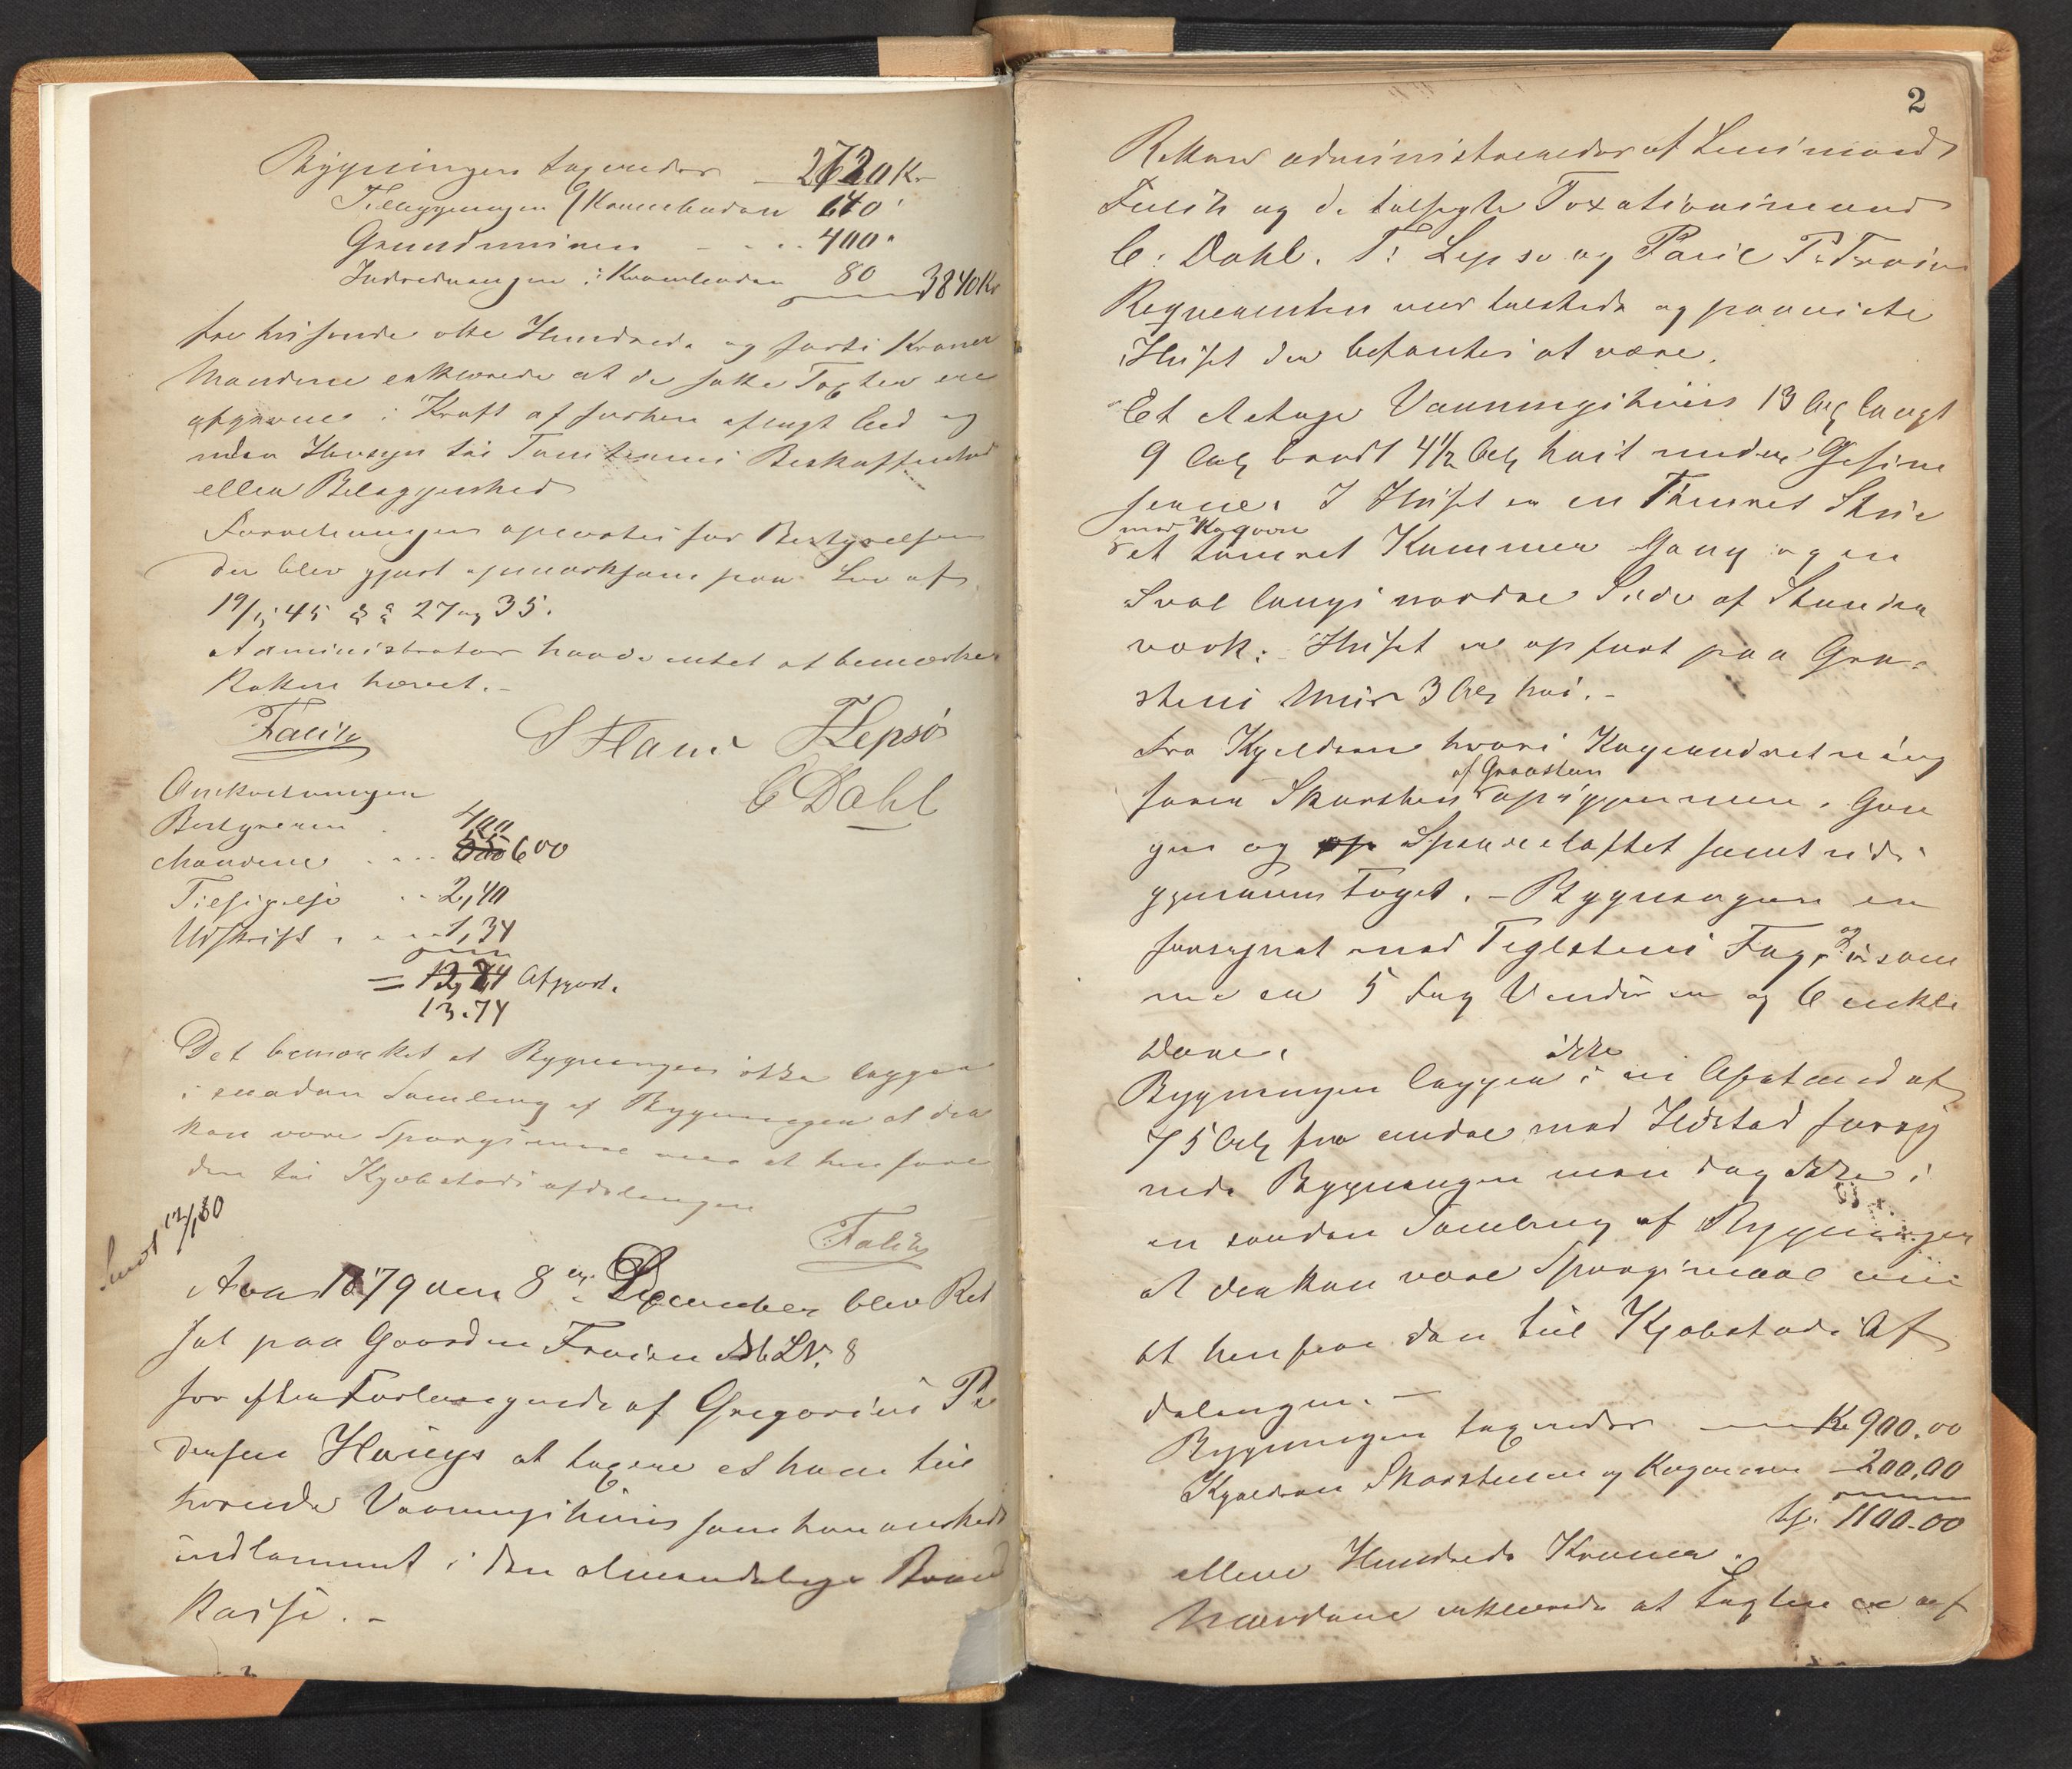 Bygningen taxeredes _ 2720 Kr
Tilbygningen /Krambuden 640"
Grundmuren - - . . 400"
Indredningen i Krambuden 80 3840 Kr
tre tusende otte Hundrede og førti Kroner
Mændene erklærede at de satte Taxter ere
afgivne i Kraft af forhen aflagt Eed og
uden Hensyn til Tomtens Beskaffenhed
eller Beliggenhed
Forretningen oplæstes for Bestyrelsen
der blev gjort opmærksom paa Lov af
19/8 45 §§ 27 og 35.
Administrator havde intet at bemærke.
Retten hævet. -
Falch S Hauς T Lepsø
C Dahl
Omkostningen
Bestyreren . 400
Mændene . . . . 600
Tilsigelse . . 2,40
Udskrift . . . . 1,34
= 12,74 Afgjort.
13.74
Det bemærkes at Bygningen ikke ligger
i saadan Samling af Bygninger at der
kan være Spørgsmaal om at henføre
den til Kjøbstadsafdelingen
Falch
Sendt 12/1 80
Aar 1879 den 8de December blev Ret
sat paa Gaarden Frøien Mb LN. 8
for efter Forlangende af Gregorius Pe
dersen Haugs at taxere et ham til
hørende Vaaningshuus som han ønskede
indlemmet i den almindelige Brand
kasse. -
2
Retten administreredes af Lensmand
Falch og de tilsagte Taxationsmænd
C: Dahl. T: Lepsø og Poul P. Frøien
Reqvirenten var tilstede og paaviste
Huset der befantes at være.
Et Etages Vaaningshuus 13 Al langt
9 Al bredt 4½ Al høit under Gesim
serne. I Huset er en Tømret Stue
med Kogovn
et tømret Kammer Gang og en
Sval langs nordre Side af Stuen
værk. Huset er opført paa Graa-
stens Muur 3 Al høi. -
Fra Kjelderen hvori Kogeindretning
af Graasten
fører Skorsten opigjennem. Gan
gen og Sperreloftet samt ud i
gjennem Taget. - Bygningen er
forsynet med Teglstens Tag, og i samme
er 5 Fag Vinduer og 6 enkle
Døre.
ikke
Bygningen ligger i en Afstand af
75 Al fra andre med Ildsted forsy
nede Bygninger men dog ikke i
en saadan Samling af Bygninger
at der kan være Spørgsmaal om
at henføre den til Kjøbstads Af
delingen. -
Bygningen taxeredes — Kr 900.00
Kjelderen Skorstenen og Kogeovnen - 200,00
Tils. 1100-00
elleve Hundrede Kroner.
Mændene erklærede at Taxten er af